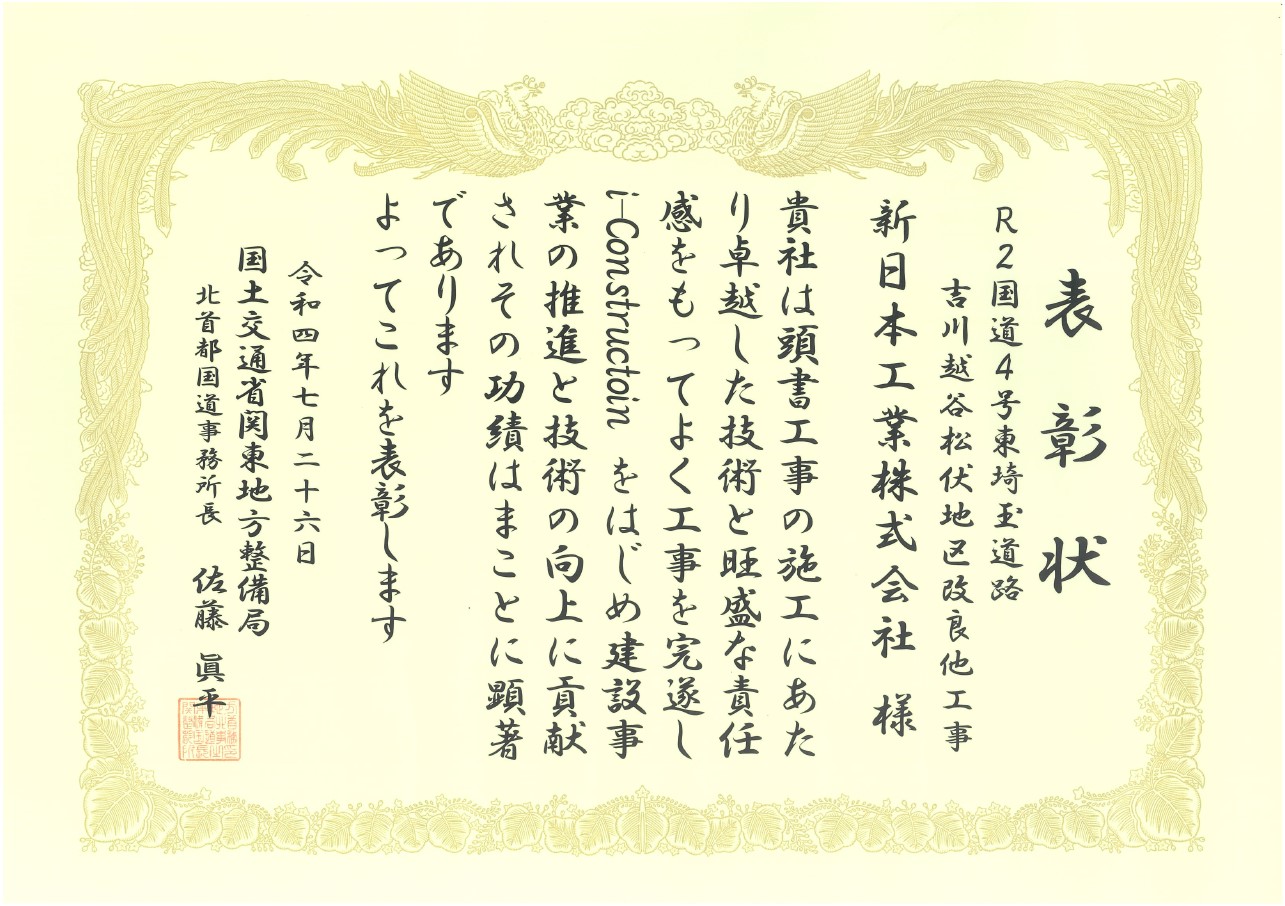 表彰状
R2国道4号東埼玉道路
吉川越谷松伏地区改良他工事
新日本工業株式会社 様
貴社は頭書工事の施工にあた
り卓越した技術と旺盛な責任
感をもってよく工事を完遂し
i-Constructoin をはじめ建設事
業の推進と技術の向上に貢献
されその功績はまことに顕著
であります
よってこれを表彰します
令和四年七月二十六日
国土交通省関東地方整備局
北首都国道事務所長 佐藤 眞平